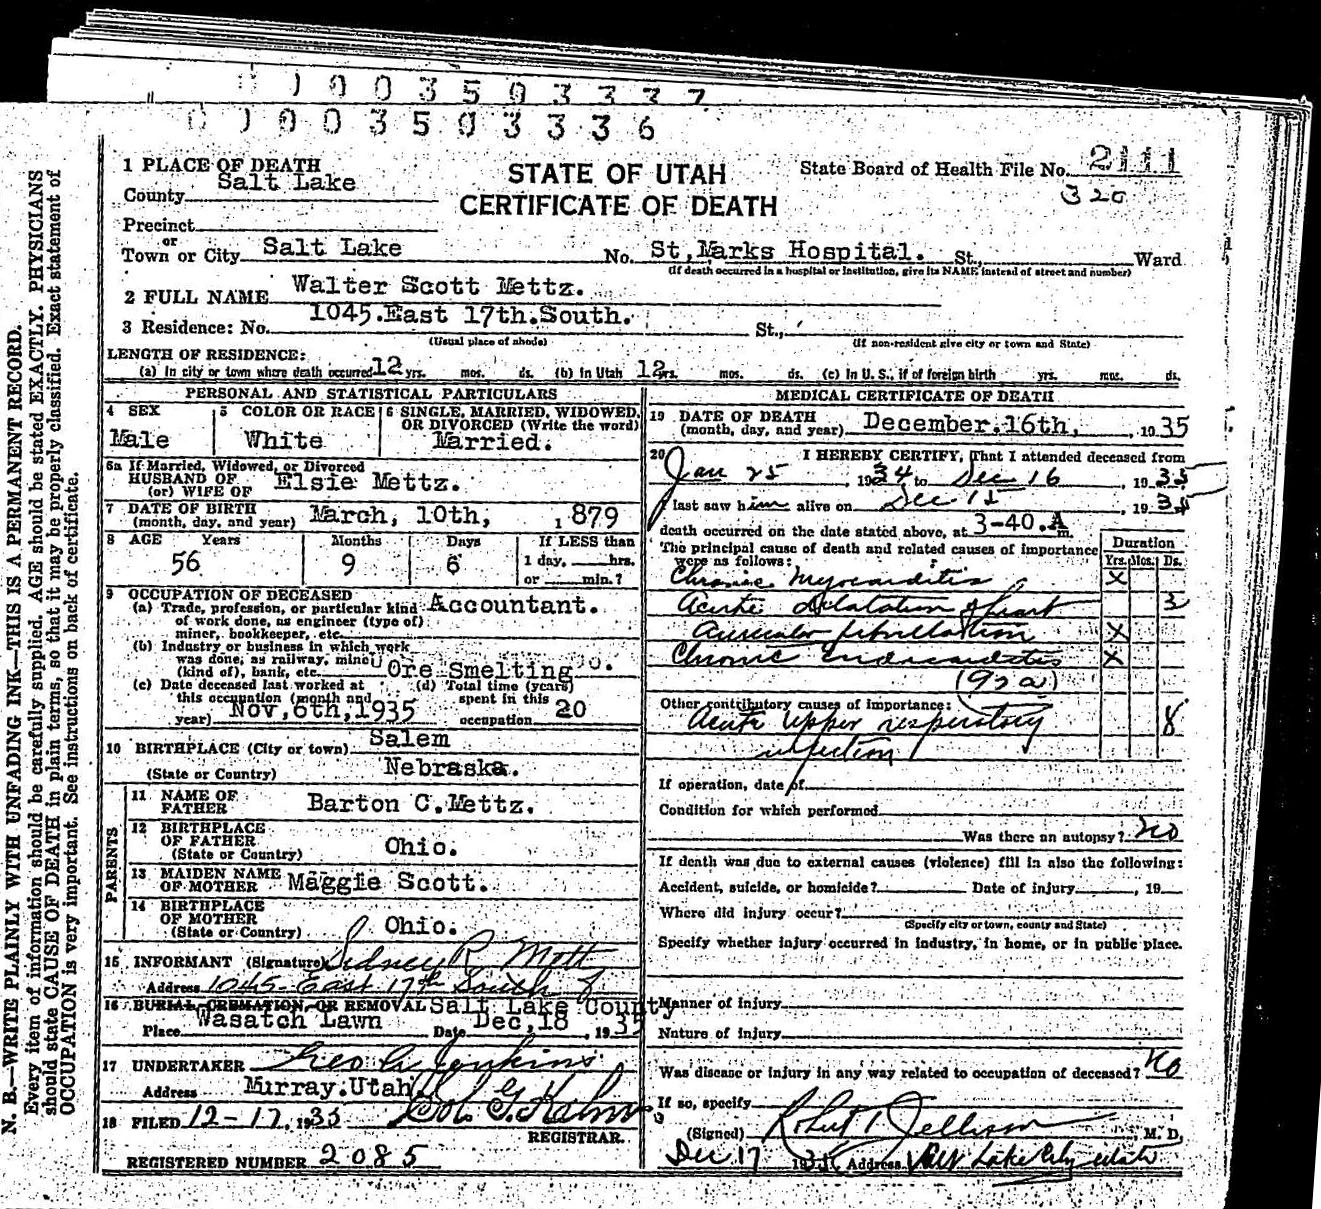 0 0 0 3 5 0 3 3 3 7
0 0 0 0 3 5 0 3 3 3 6
1 PLACE OF DEATH
County Salt Lake
STATE OF UTAH
CERTIFICATE OF DEATH
State Board of Health File No. 2111
320
Precinct
or
Town or City Salt Lake No. St, Marks Hospital. St., Ward
(If death occurred in a hospital or institution, give its NAME instead of street and number)
2 FULL NAME Walter Scott Mettz.
3 Residence: No. 1045.East 17th.South. St.,
(Usual place of abode) (If non-resident give city or town and State)
LENGTH OF RESIDENCE:
(a) In city or town where death occurred 12 yrs. mos. ds. (b) In Utah 12 yrs. mos. ds. (c) In U. S., if of foreign birth yrs. mos. ds.
PERSONAL AND STATISTICAL PARTICULARS
4 SEX Male
5 COLOR OR RACE White
6 SINGLE, MARRIED, WIDOWED, OR DIVORCED (Write the word) Married.
6a If Married, Widowed, or Divorced
HUSBAND OF
(or) WIFE OF Elsie Mettz.
7 DATE OF BIRTH
(month, day, and year) March, 10th, 1879
8 AGE Years Months Days If LESS than
56 9 6 1 day, hrs.
or min.?
9 OCCUPATION OF DECEASED
(a) Trade, profession, or particular kind Accountant.
of work done, as engineer (type of)
miner, bookkeeper, etc.
(b) Industry or business in which work
was done, as railway, mine
(kind of), bank, etc. Ore Smelting
(c) Date deceased last worked at (d) Total time (years)
this occupation (month and spent in this
year) Nov,6th,1935 occupation 20
10 BIRTHPLACE (City or town) Salem
(State or Country) Nebraska.
PARENTS
11 NAME OF
FATHER Barton C.Mettz.
12 BIRTHPLACE
OF FATHER
(State or Country) Ohio.
13 MAIDEN NAME
OF MOTHER Maggie Scott.
14 BIRTHPLACE
OF MOTHER
(State or Country) Ohio.
15 INFORMANT (Signature) Sidney R Mott
Address 1045 East 17th South
16 BURIAL, CREMATION, OR REMOVAL Salt Lake County
Place Wasatch Lawn Date Dec,18 , 1935
17 UNDERTAKER Geo A Jenkins
Address Murray.Utah
18 FILED 12-17, 1935
REGISTRAR.
REGISTERED NUMBER 2085
MEDICAL CERTIFICATE OF DEATH
19 DATE OF DEATH
(month, day, and year) December.16th, , 1935
20 I HEREBY CERTIFY, That I attended deceased from
Jan 25 , 1934 to Dec 16 , 1935
I last saw him alive on Dec 15 , 1935
death occurred on the date stated above, at 3-40.A m.
The principal cause of death and related causes of importance
were as follows:
Duration
Yrs. Mos. Ds.
Chronic Myocarditis X
Acute dilatation of heart 3
Auricular fibrillation X
Chronic Endocarditis X
(92a)
Other contributory causes of importance:
Acute Upper respiratory 8
infection
If operation, date of
Condition for which performed
Was there an autopsy? No
If death was due to external causes (violence) fill in also the following:
Accident, suicide, or homicide? Date of injury , 19
Where did injury occur?
(Specify city or town, county and State)
Specify whether injury occurred in industry, in home, or in public place.
Manner of injury
Nature of injury
Was disease or injury in any way related to occupation of deceased? No
If so, specify
(Signed) Robert T Jellison , M. D.
Dec 17 1935 Address Salt Lake City Utah
N. B.—WRITE PLAINLY WITH UNFADING INK—THIS IS A PERMANENT RECORD.
Every item of information should be carefully supplied. AGE should be stated EXACTLY. PHYSICIANS
should state CAUSE OF DEATH in plain terms, so that it may be properly classified. Exact statement of
OCCUPATION is very important. See instructions on back of certificate.